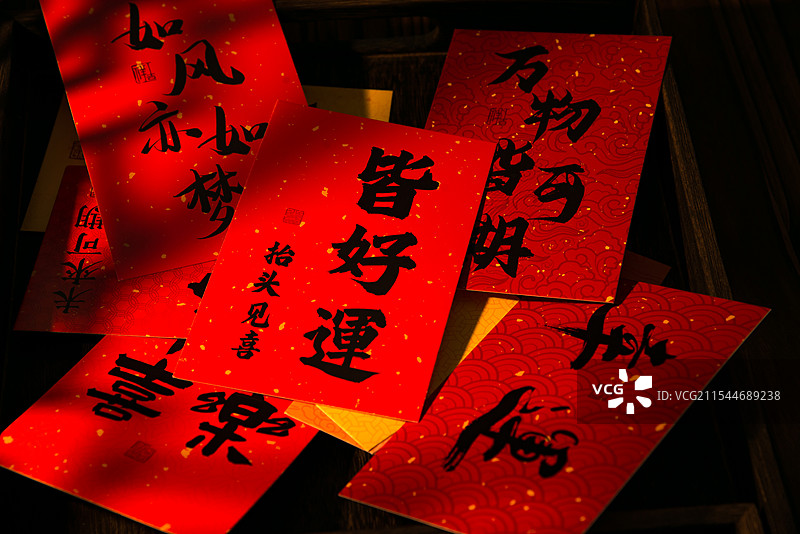 如风
亦如梦
万物
皆可
皆好運
抬头见喜
未来可期
喜樂
VCG
ID: VCG211544689238